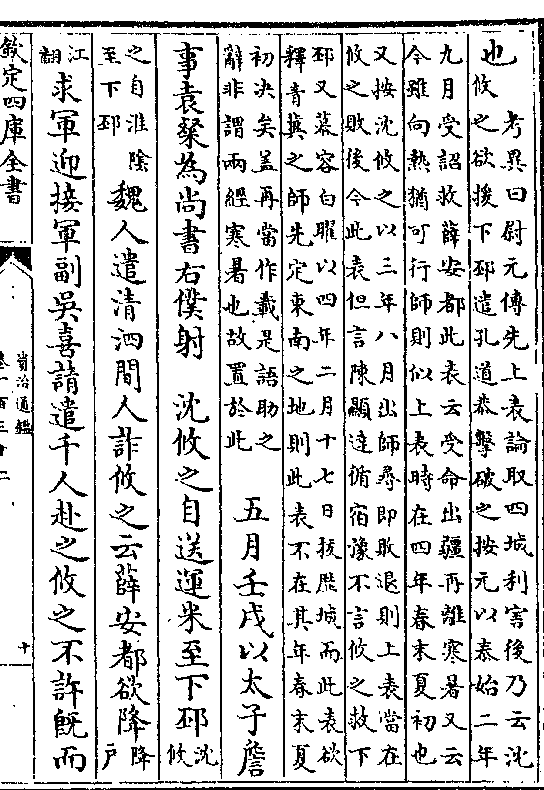 也
考異曰尉元傳先上表論取四城利害後乃云沈
攸之欲援下邳遣孔道恭擊破之按元以泰始二年
九月受詔救薛安都此表云受命出疆再離寒暑又云
今雖向熱猶可行師則似上表時在四年春末夏初也
又按沈攸之以三年八月出師尋即敗退則上表當在
攸之敗後今此表但言陳顯達循宿豫不言攸之救下
邳又慕容白曜以四年二月十七日拔歷城而此表欲
釋青冀之師先定東南之地則此表不在其年春末夏
初決矣蓋再當作載是語助之
辭非謂兩經寒暑也故置於此
五月壬戌以太子詹
事袁粲為尚書右僕射　沈攸之自送運米至下邳
沈
攸
之自淮陰
至下邳
魏人遣清泗間人詐攸之云薛安都欲降
降
戶
江
翻
求軍迎接軍副吳喜請遣千人赴之攸之不許既而
欽定四庫全書
資治通鑑
卷一百三十二
十